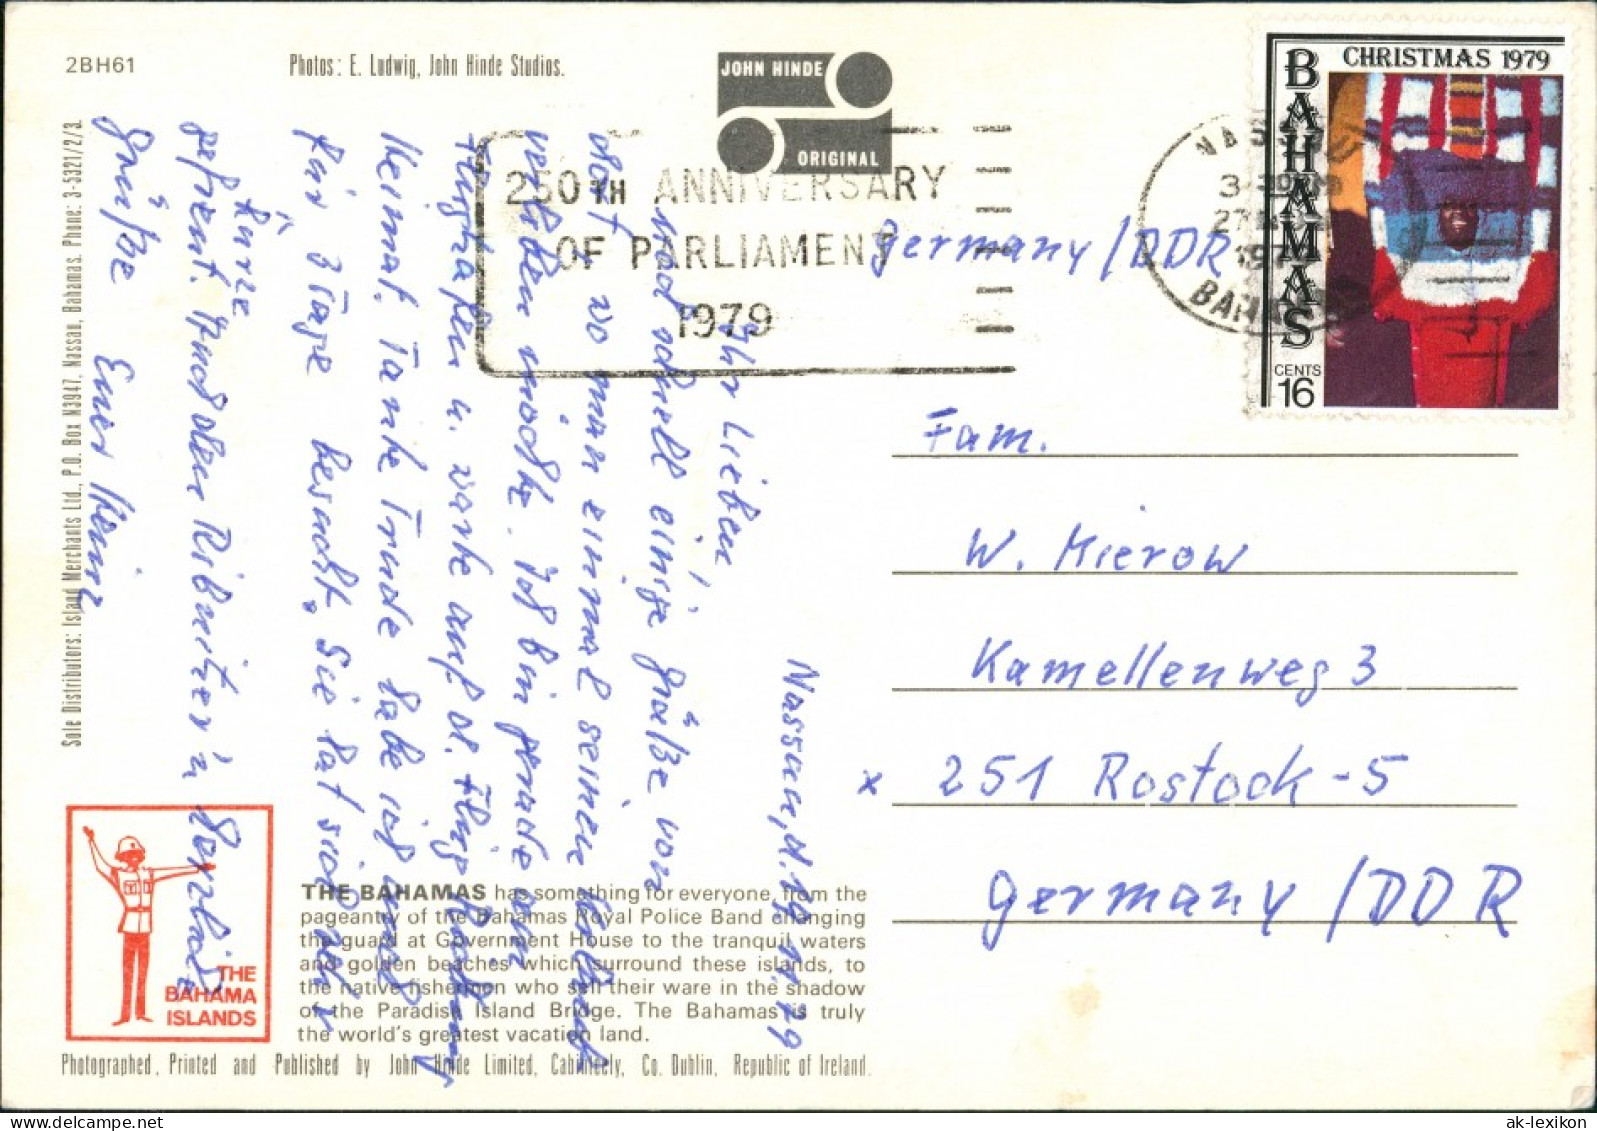 2BH61
Photos: E. Ludwig, John Hinde Studios.
JOHN HINDE
ORIGINAL
250TH ANNIVERSARY
OF PARLIAMENT
1979
BAHAMAS
CHRISTMAS 1979
CENTS
16
Germany/DDR
Fam.
W. Mierow
Kamellenweg 3
x 251 Rostock-5
Germany/DDR
Nassau, d. 19.12.79
Ihr Lieben
noch schnell einige Grüße von
dort, wo man einmal seinen Urlaub
verleben möchte. Ich bin gerade am
Flughafen u. warte auf d. Flug Richtung
Heimat. Tante Trude habe ich auch
für 3 Tage besucht. Sie hat sich sehr
gefreut. Auch den Ribnitzer'n
Kürze
Herzlich
Grüße Euer Heinz
Sole Distributors: Island Merchants Ltd., P.O. Box N3947, Nassau, Bahamas. Phone: 3-5321/2/3.
THE
BAHAMA
ISLANDS
THE BAHAMAS has something for everyone, from the
pageantry of the Bahamas Royal Police Band changing
the guard at Government House to the tranquil waters
and golden beaches which surround these islands, to
the native fishermen who sell their ware in the shadow
of the Paradise Island Bridge. The Bahamas is truly
the world's greatest vacation land.
Photographed, Printed and Published by John Hinde Limited, Cabinteely, Co. Dublin, Republic of Ireland.
ak-lexikon